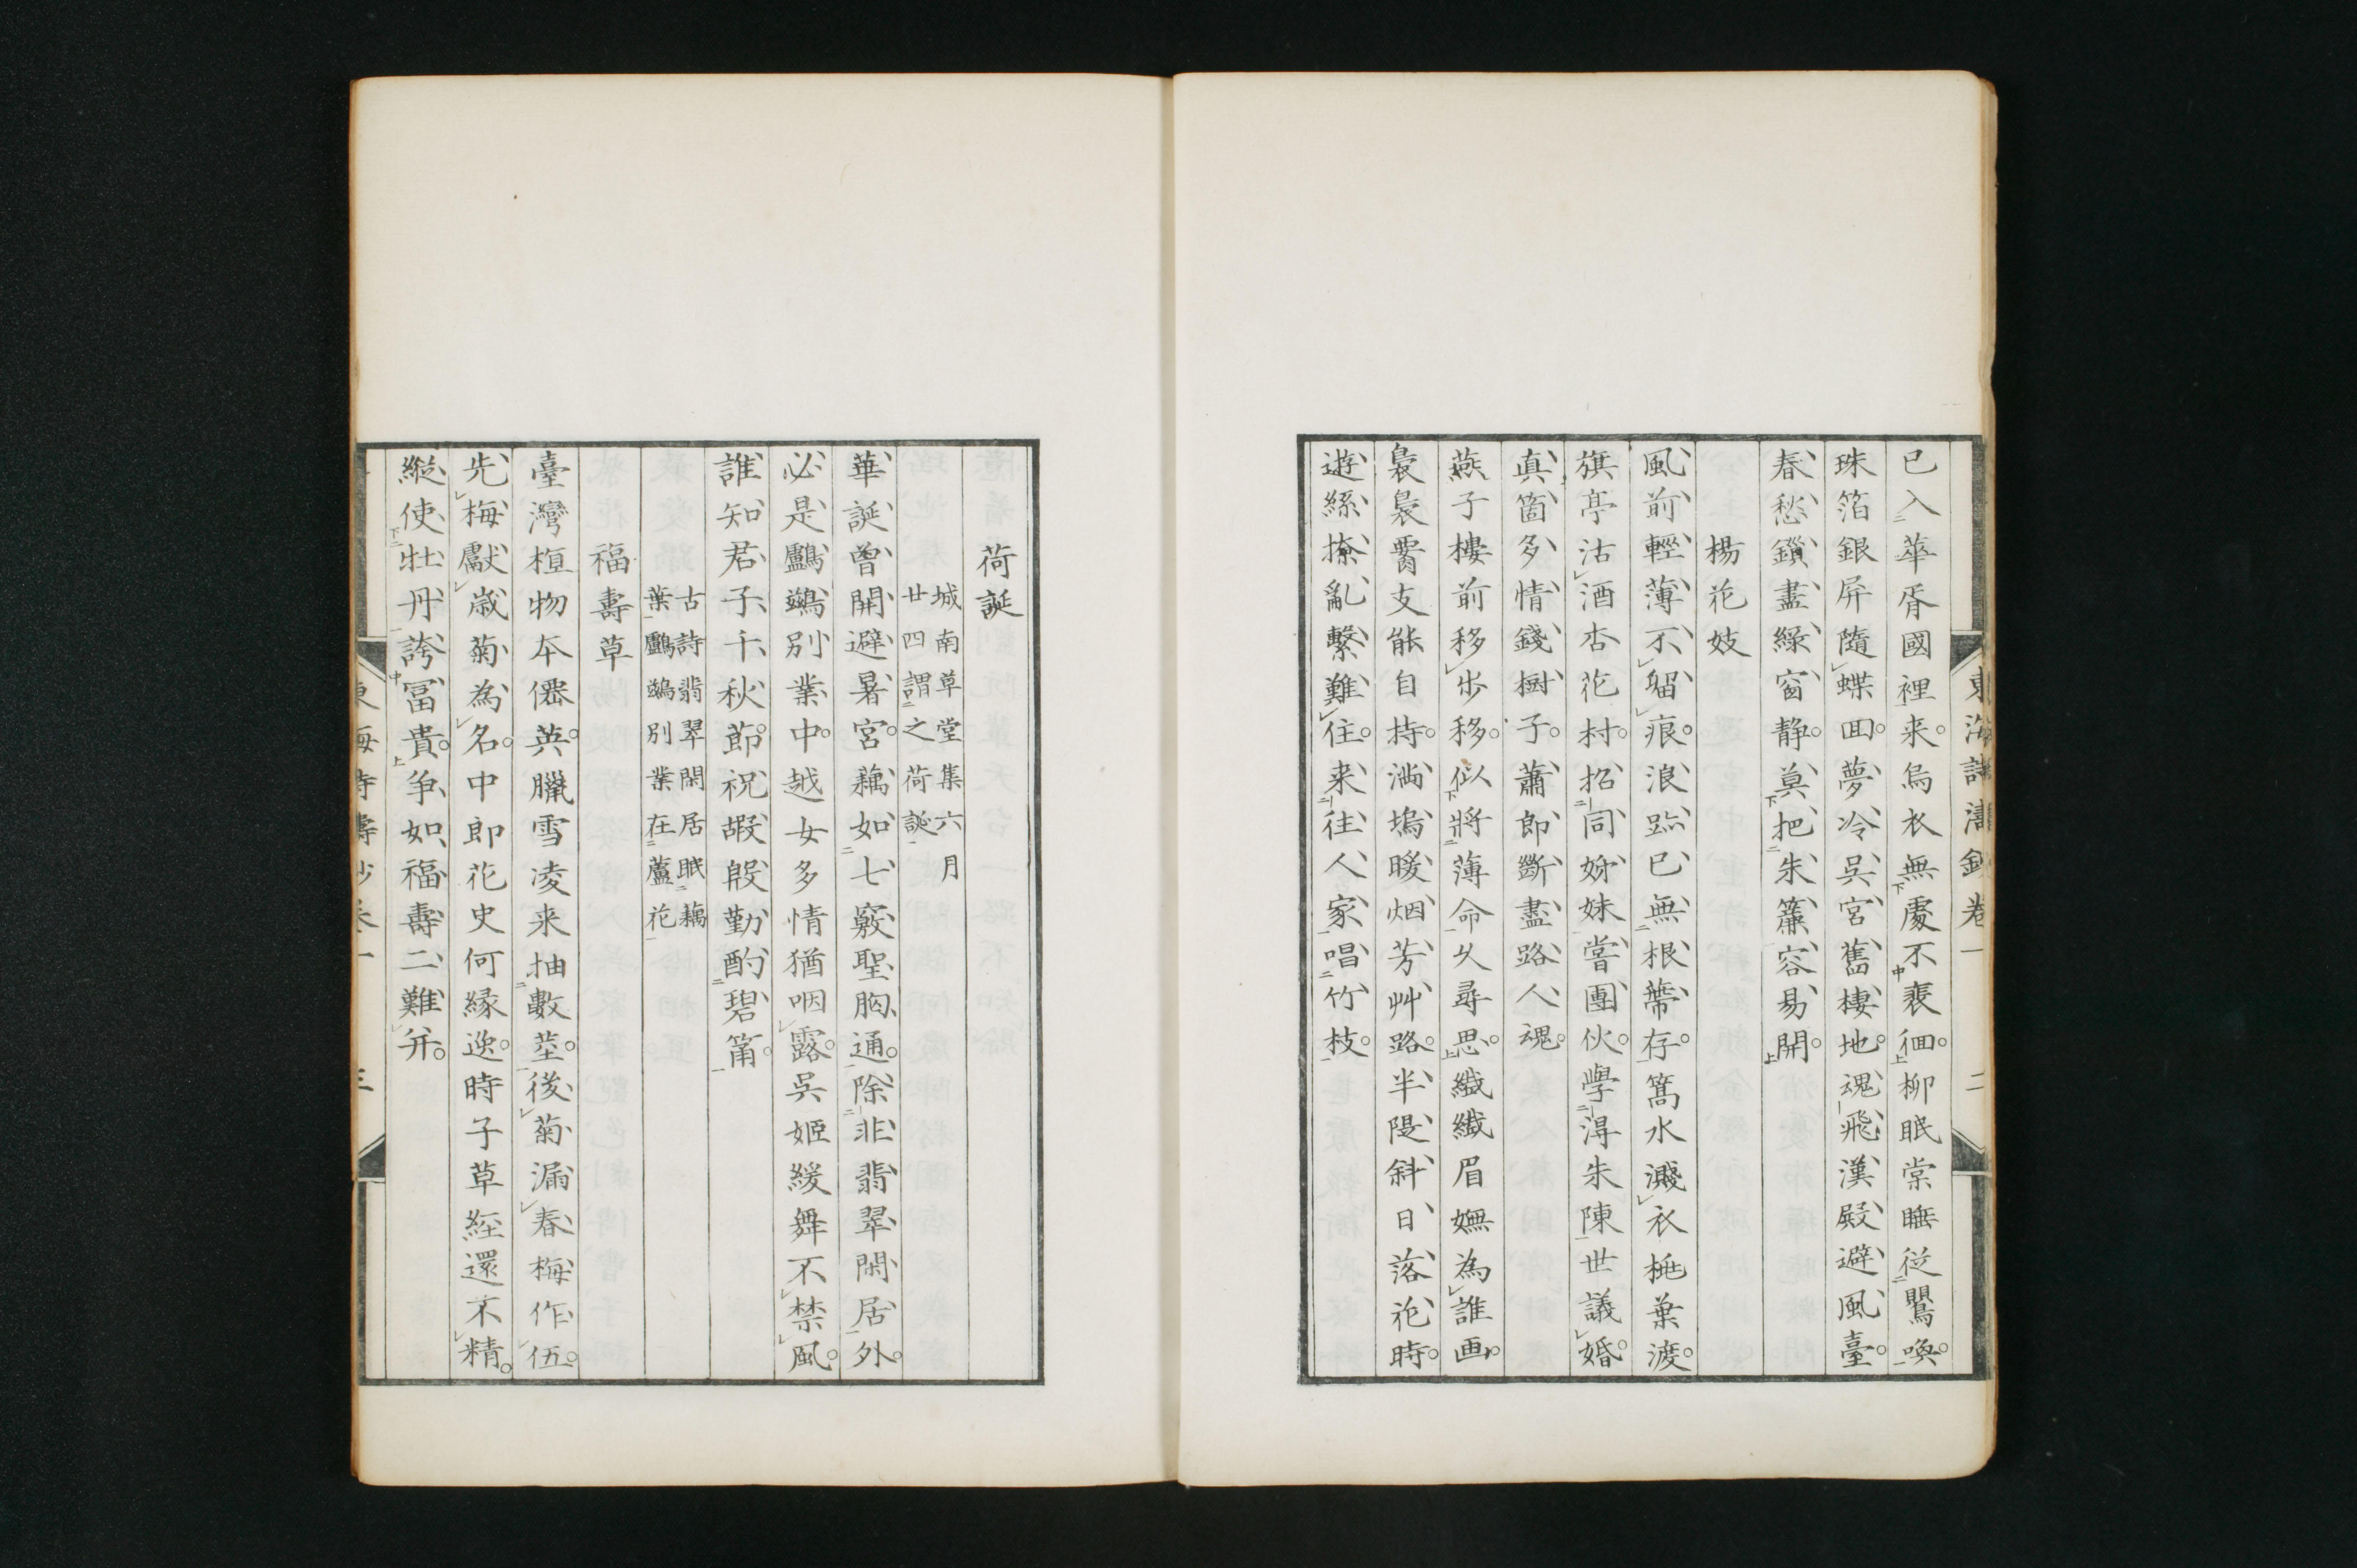 東海詩濤鈔卷一 二
已入華胥國裡来烏衣無處不裵徊柳眠棠睡從鸎喚
珠箔銀屏隨蝶回夢冷吳宮舊棲地魂飛漢殿避風臺
春愁鎖盡綠窗静莫把朱簾容易開
楊花妓
風前輕薄不留痕浪跡已無根蒂存篙水濺衣桃葉渡
旗亭沽酒杏花村招同姊妹嘗團伙學得朱陳世議婚
真箇多情錢樹子蕭郎斷盡路人魂
燕子樓前移步移似將薄命乆尋思纖纖眉嫵為誰画
裊裊腰支能自持満塢暖烟芳艸路半隄斜日落花時
遊絲撩亂繫難住来往人家唱竹枝
荷誕
城南草堂集六月
廿四謂之荷誕
華誕曾開避暑宮藕如七竅聖胸通除非翡翠閑居外
必是鸕鷀別業中越女多情猶咽露吳姬緩舞不禁風
誰知君子千秋節祝嘏殷勤酌碧筩
古詩翡翠閑居眠藕
葉鸕鷀別業在蘆花
福壽草
臺灣植物夲僊英臘雪凌来抽數莖後菊漏春梅作伍
先梅獻歳菊為名中郎花史何縁逸時子草經還不精
縦使牡丹誇冨貴争如福壽二難并
東海詩濤鈔卷一 三